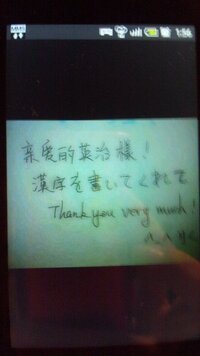 1:56
亲爱的英治様！
漢字を書いてくれて
Thank you very much!